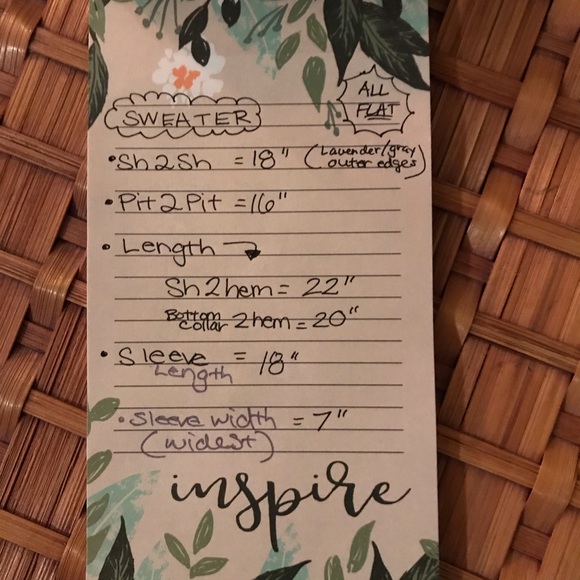 SWEATER
ALL
FLAT
• Sh2Sh = 18" (Lavender/gray
outer edges)
• Pit2Pit = 16"
• Length
Sh2hem = 22"
Bottom
collar 2hem = 20"
• Sleeve = 18"
Length
• Sleeve width = 7"
(widest)
inspire